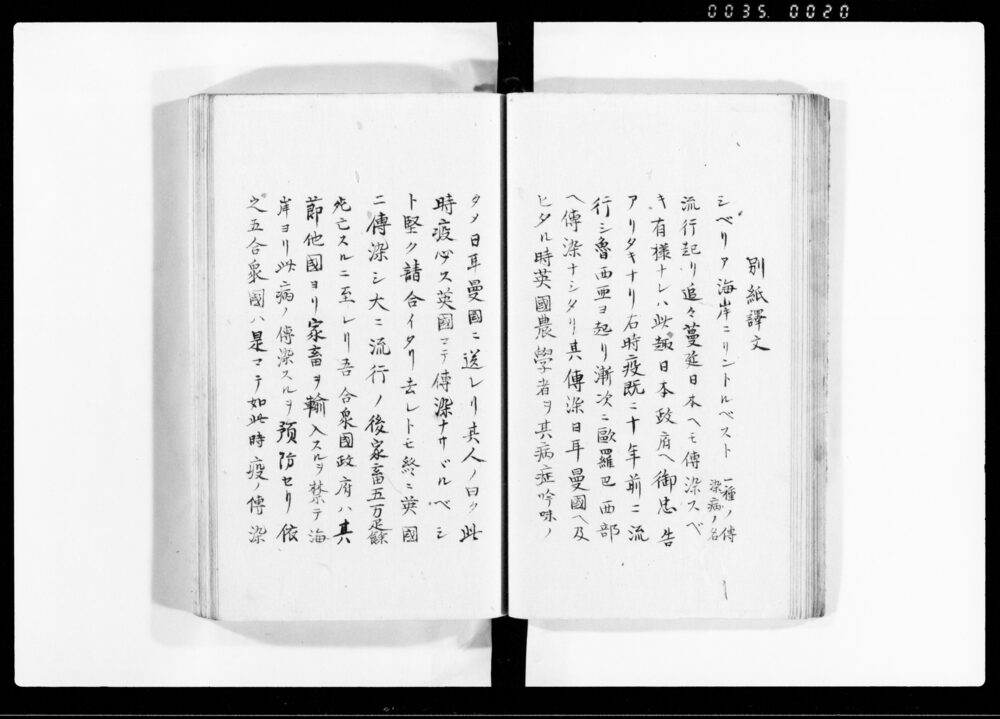 0035. 0020
別紙譯文
シベリア海岸ニリントルペスト 一種ノ傳染病ノ名
流行起リ追々蔓延日本ヘモ傳染スベ
キ有様ナレハ此趣日本政府ヘ御忠告
アリタキナリ右時疫既ニ十年前ニ流
行シ魯西亜ヨ起リ漸次ニ歐羅巴西部
ヘ傳染ナシタリ其傳染日耳曼國ヘ及
ヒタル時英國農學者ヲ其病症吟味ノ
タメ日耳曼國ニ送レリ其人ノ曰ク此
時疫必ス英國マテ傳染ナサヾルベシ
ト堅ク請合イタリ去レトモ終ニ英國
ニ傳染シ大ニ流行ノ後家畜五万疋餘
死亡スルニ至レリ吾合衆國政府ハ其
節他國ヨリ家畜ヲ輸入スルヲ禁テ海
岸ヨリ此病ノ傳染スルヲ預防セリ依
之五合衆國ハ是マテ如此時疫ノ傳染